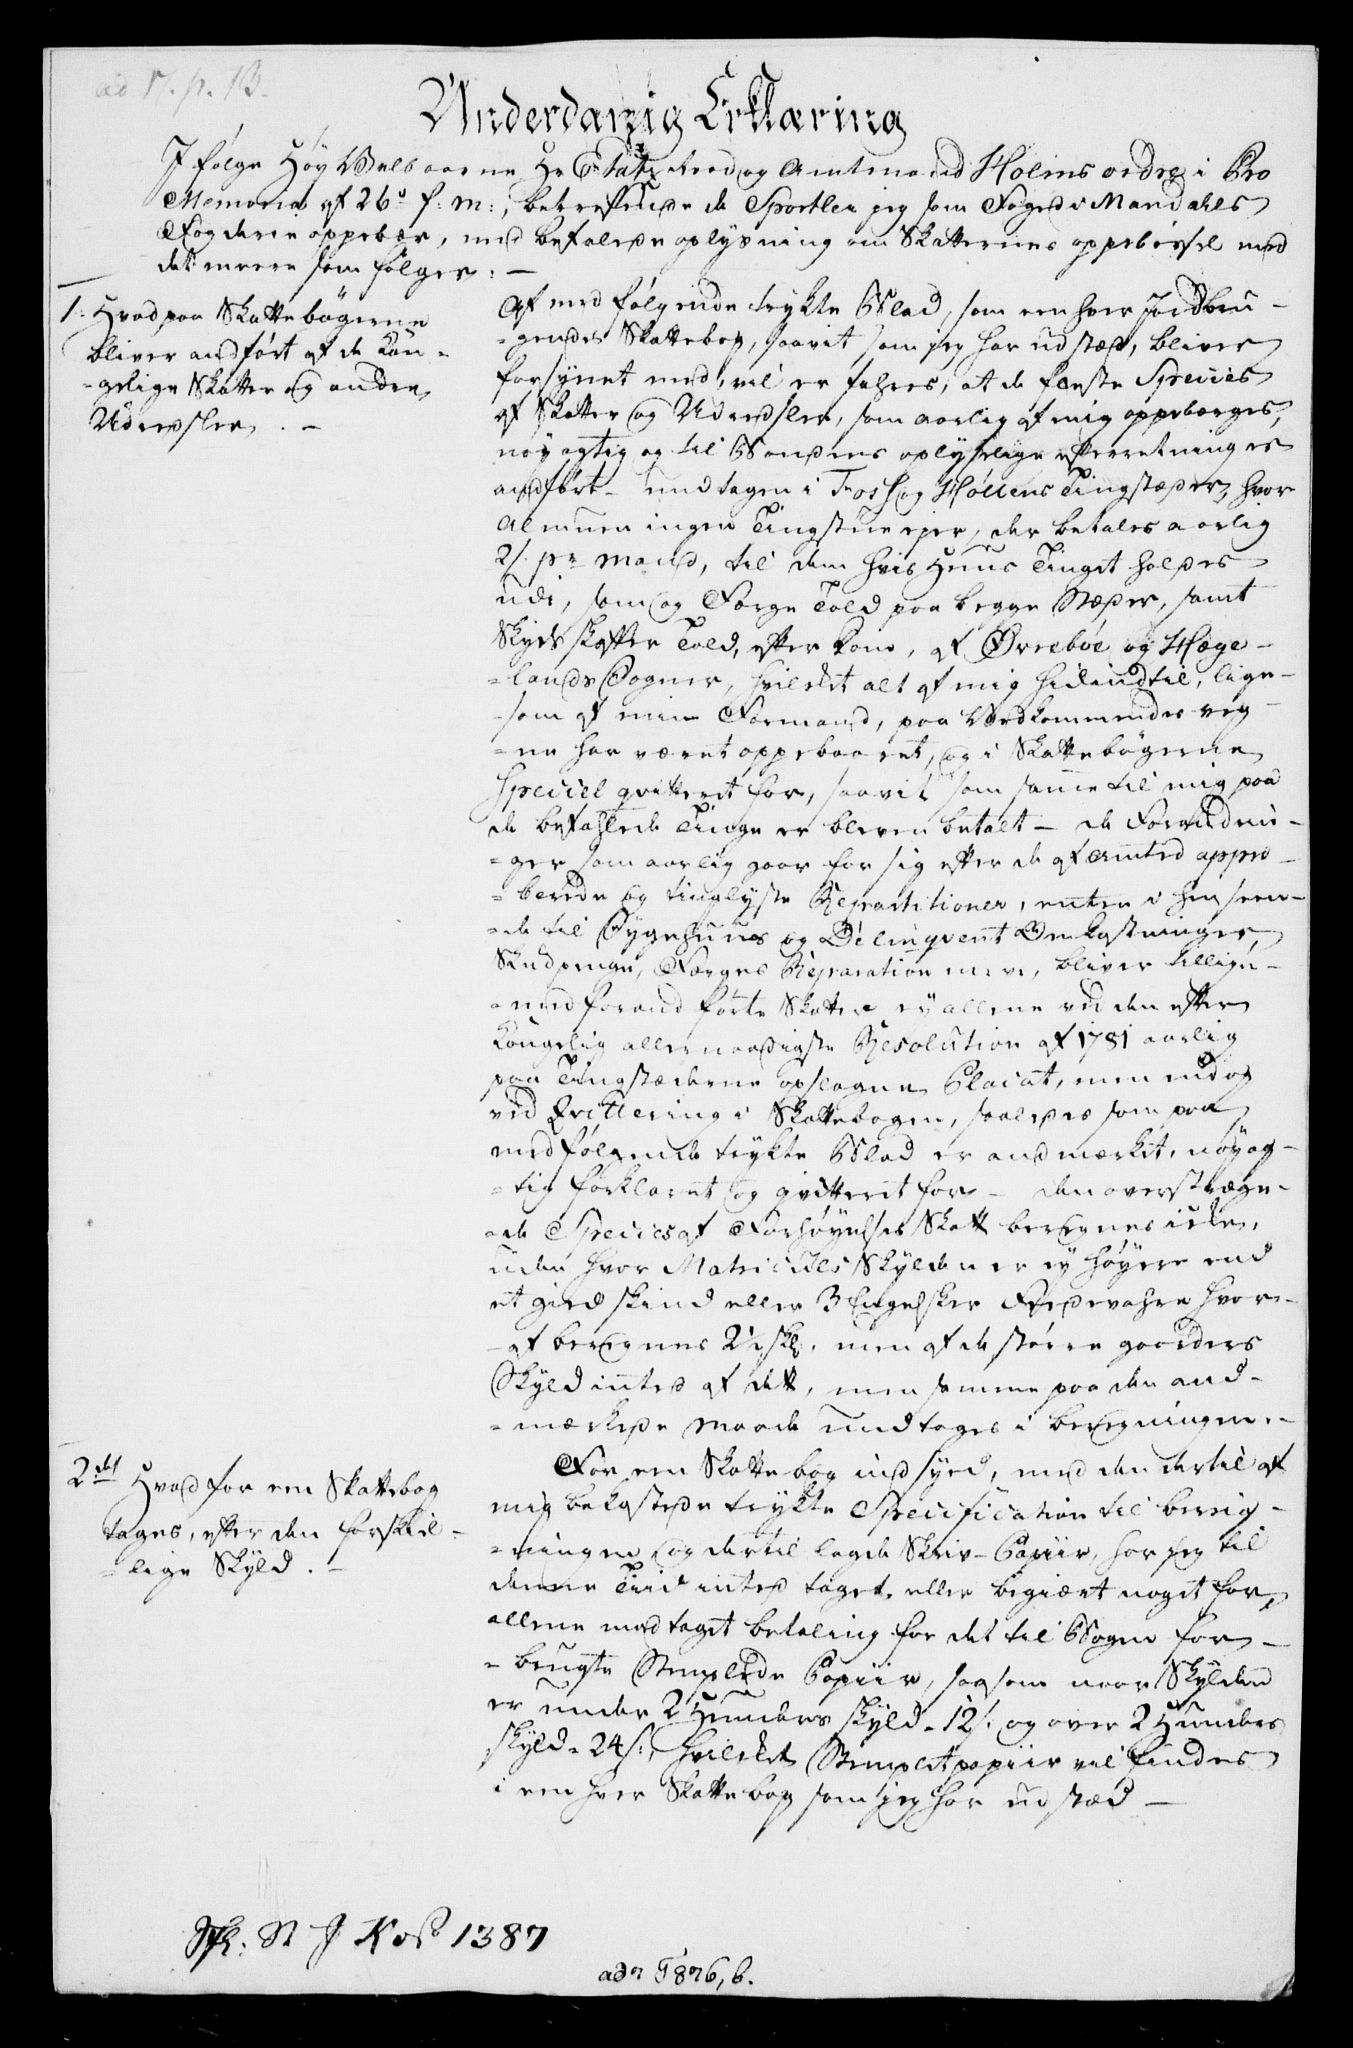 ad N. p. 13.
Underdanig Erklæring
I følge Høy Velbaarne Hr Etatz Raad og Amtmand Holms ordre i Pro
Memoria af 26de f: m:, betreffende de Sportler jeg som Foged i Mandahls
Fogderie oppebær, med befalede oplysning om Skatternes oppebørsel med
det meere som følger: —
1. Hvad paa Skattebøgerne
bliver andført af de Kon-
-gelige Skatter og andre
Udredsler. —
Af med følgende trykte Blad, som een hver Jordbru-
-gendes Skattebog, saavit som jeg har udstæd, bliver
forsynet med, vil erfahres, at de fleeste Species
af Skatter og Udredsler, som aarlig af mig oppebærges,
nøyagtig og til Bondens oplyselige efterretning er
andført — undtagen i Foss og Høllens Tingstæder, hvor
Almuen ingen Tingstue ejer, der betales aarlig
2 s. pr mand, til den hvis Huus Tinget holdes
udi, som og Færge Told paa begge Stæder, samt
Skyds skaffer Told, efter Konn, af Øvrebøe og Hæge-
-lands Sogner, hvilcket alt af mig hidindtil, lige-
-som af min Formand, paa Vedkommendes veg-
-ne har været oppebaaret, og i Skattebøgerne
Speciel qvitteret for, saavit som samme til mig paa
de befahlede Tinge er bleven betalt — de Forandrin-
-ger som aarlig gaar for sig efter de af Amtet appro-
-berede og tinglyste Repartitioner, enten i henseen-
-de til Sygehuus og Delinqvent Bekostninger,
Skudpenge, Færges Reparation m: v:, bliver tillige-
-med forandførte Skatter ey allene ved den efter
Kongelig allernaadigste Resolution af 1781 aarlig
paa Tingstæderne opslagne Placat, men endog
ved Qvittering i Skattebogen, saaledes som paa
medfølgende trykte Blad er andmærket, nøyag-
-tig forklaret og qvitteret for — den overstrægne-
-de Species af Forhøyelses Skatt beregnes icke,
uden hvor Matriculs Skylden er ey høyere end
et gied skind eller 3 Engelsker Federahre hvor-
-af beregnes 2 skl. men af de større gaarders
Skyld inted af dett, men samme paa den and-
-mærkede Maade undtages i beregningen. —
2det Hvad for een Skattebog
tages, efter den forskiel-
-lige Skyld. —
For een Skattebog indsyed, med den dertil af
mig bekostede trykte Specification til bereg-
-ningen og dertil lagde Skriv-Papiir, har jeg til
denne Tiid inted taget eller begiært noget for,
allene modtaget betaling for det til Bogen for-
-brugte Stemplede Papiir, saasom naar Skylden
er under 2 Hunders skyld - 12 s. og over 2 Hunders
skyld - 24 s:, hvilcket Stempletpapiir vil findes
i een hver Skattebog som jeg har udstæd —
Spk: St J Koss 1387
adn 1826, b.